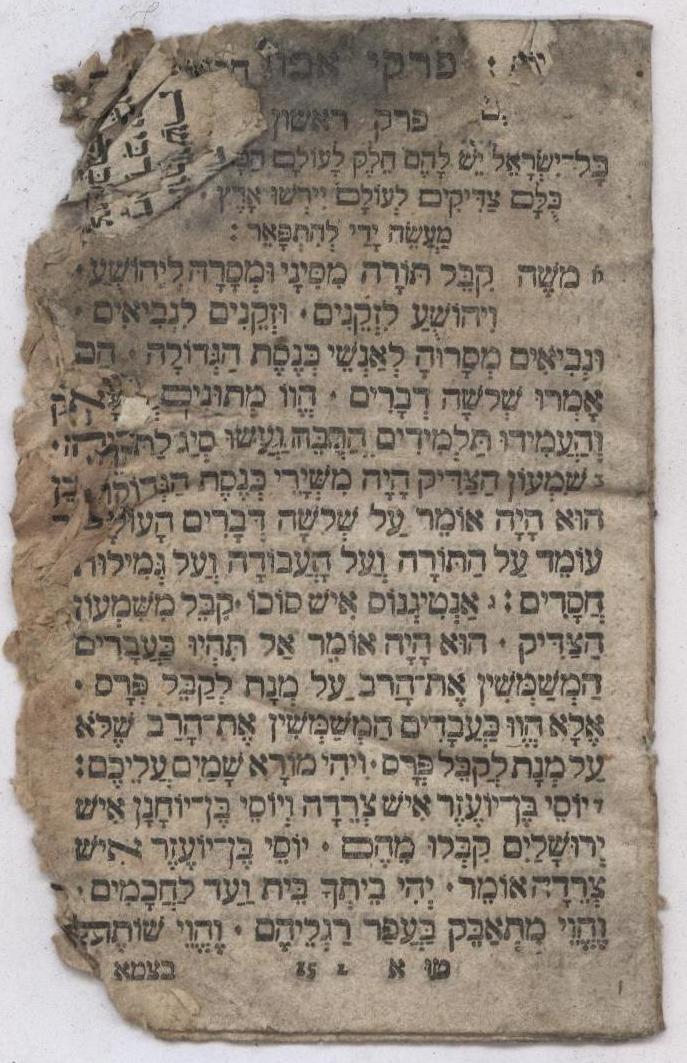 פרקי
פרק ראשון
כָּל־יִשְׂרָאֵל יֵשׁ לָהֶם חֵלֶק לָעוֹלָם
כֻּלָּם צַדִּיקִים לְעוֹלָם יִירְשׁוּ אָרֶץ ·
מַעֲשֵׂה יָדַי לְהִתְפָּאֵר :
א מֹשֶׁה קִבֵּל תּוֹרָה מִסִּינַי וּמְסָרָהּ לִיהוֹשֻׁעַ ·
וִיהוֹשֻׁעַ לִזְקֵנִים · וּזְקֵנִים לִנְבִיאִים ·
וּנְבִיאִים מְסָרוּהָ לְאַנְשֵׁי כְּנֶסֶת הַגְּדוֹלָה · הֵם
אָמְרוּ שְׁלֹשָׁה דְבָרִים · הֱווּ מְתוּנִים
וְהַעֲמִידוּ תַּלְמִידִים הַרְבֵּה וַעֲשׂוּ סְיָג
ב שִׁמְעוֹן הַצַּדִּיק הָיָה מִשְּׁיָרֵי כְּנֶסֶת
הוּא הָיָה אוֹמֵר עַל שְׁלֹשָׁה דְּבָרִים
עוֹמֵד עַל הַתּוֹרָה וְעַל הָעֲבוֹדָה וְעַל גְּמִילוּת
חֲסָדִים : ג אַנְטִיגְנוֹס אִישׁ סוֹכוֹ · קִבֵּל מִשִּׁמְעוֹן
הַצַּדִּיק · הוּא הָיָה אוֹמֵר אַל תִּהְיוּ כַּעֲבָדִים
הַמְשַׁמְּשִׁין אֶת־הָרַב עַל מְנָת לְקַבֵּל פְּרָס ·
אֶלָּא הֱווּ כַּעֲבָדִים הַמְשַׁמְּשִׁין אֶת־הָרַב שֶׁלֹּא
עַל מְנָת לְקַבֵּל פְּרָס · וִיהִי מוֹרָא שָׁמַיִם עֲלֵיכֶם :
ד יוֹסֵי בֶּן־יוֹעֶזֶר אִישׁ צְרֵדָה וְיוֹסֵי בֶּן־יוֹחָנָן אִישׁ
יְרוּשָׁלַיִם קִבְּלוּ מֵהֶם · יוֹסֵי בֶּן־יוֹעֶזֶר אִישׁ
צְרֵדָה אוֹמֵר · יְהִי בֵיתְךָ בֵּית וַעַד לַחֲכָמִים ·
וֶהֱוֵי מִתְאַבֵּק בַּעֲפַר רַגְלֵיהֶם · וֶהֱוֵי שׁוֹתֶה
טו א 1 15 בצמא